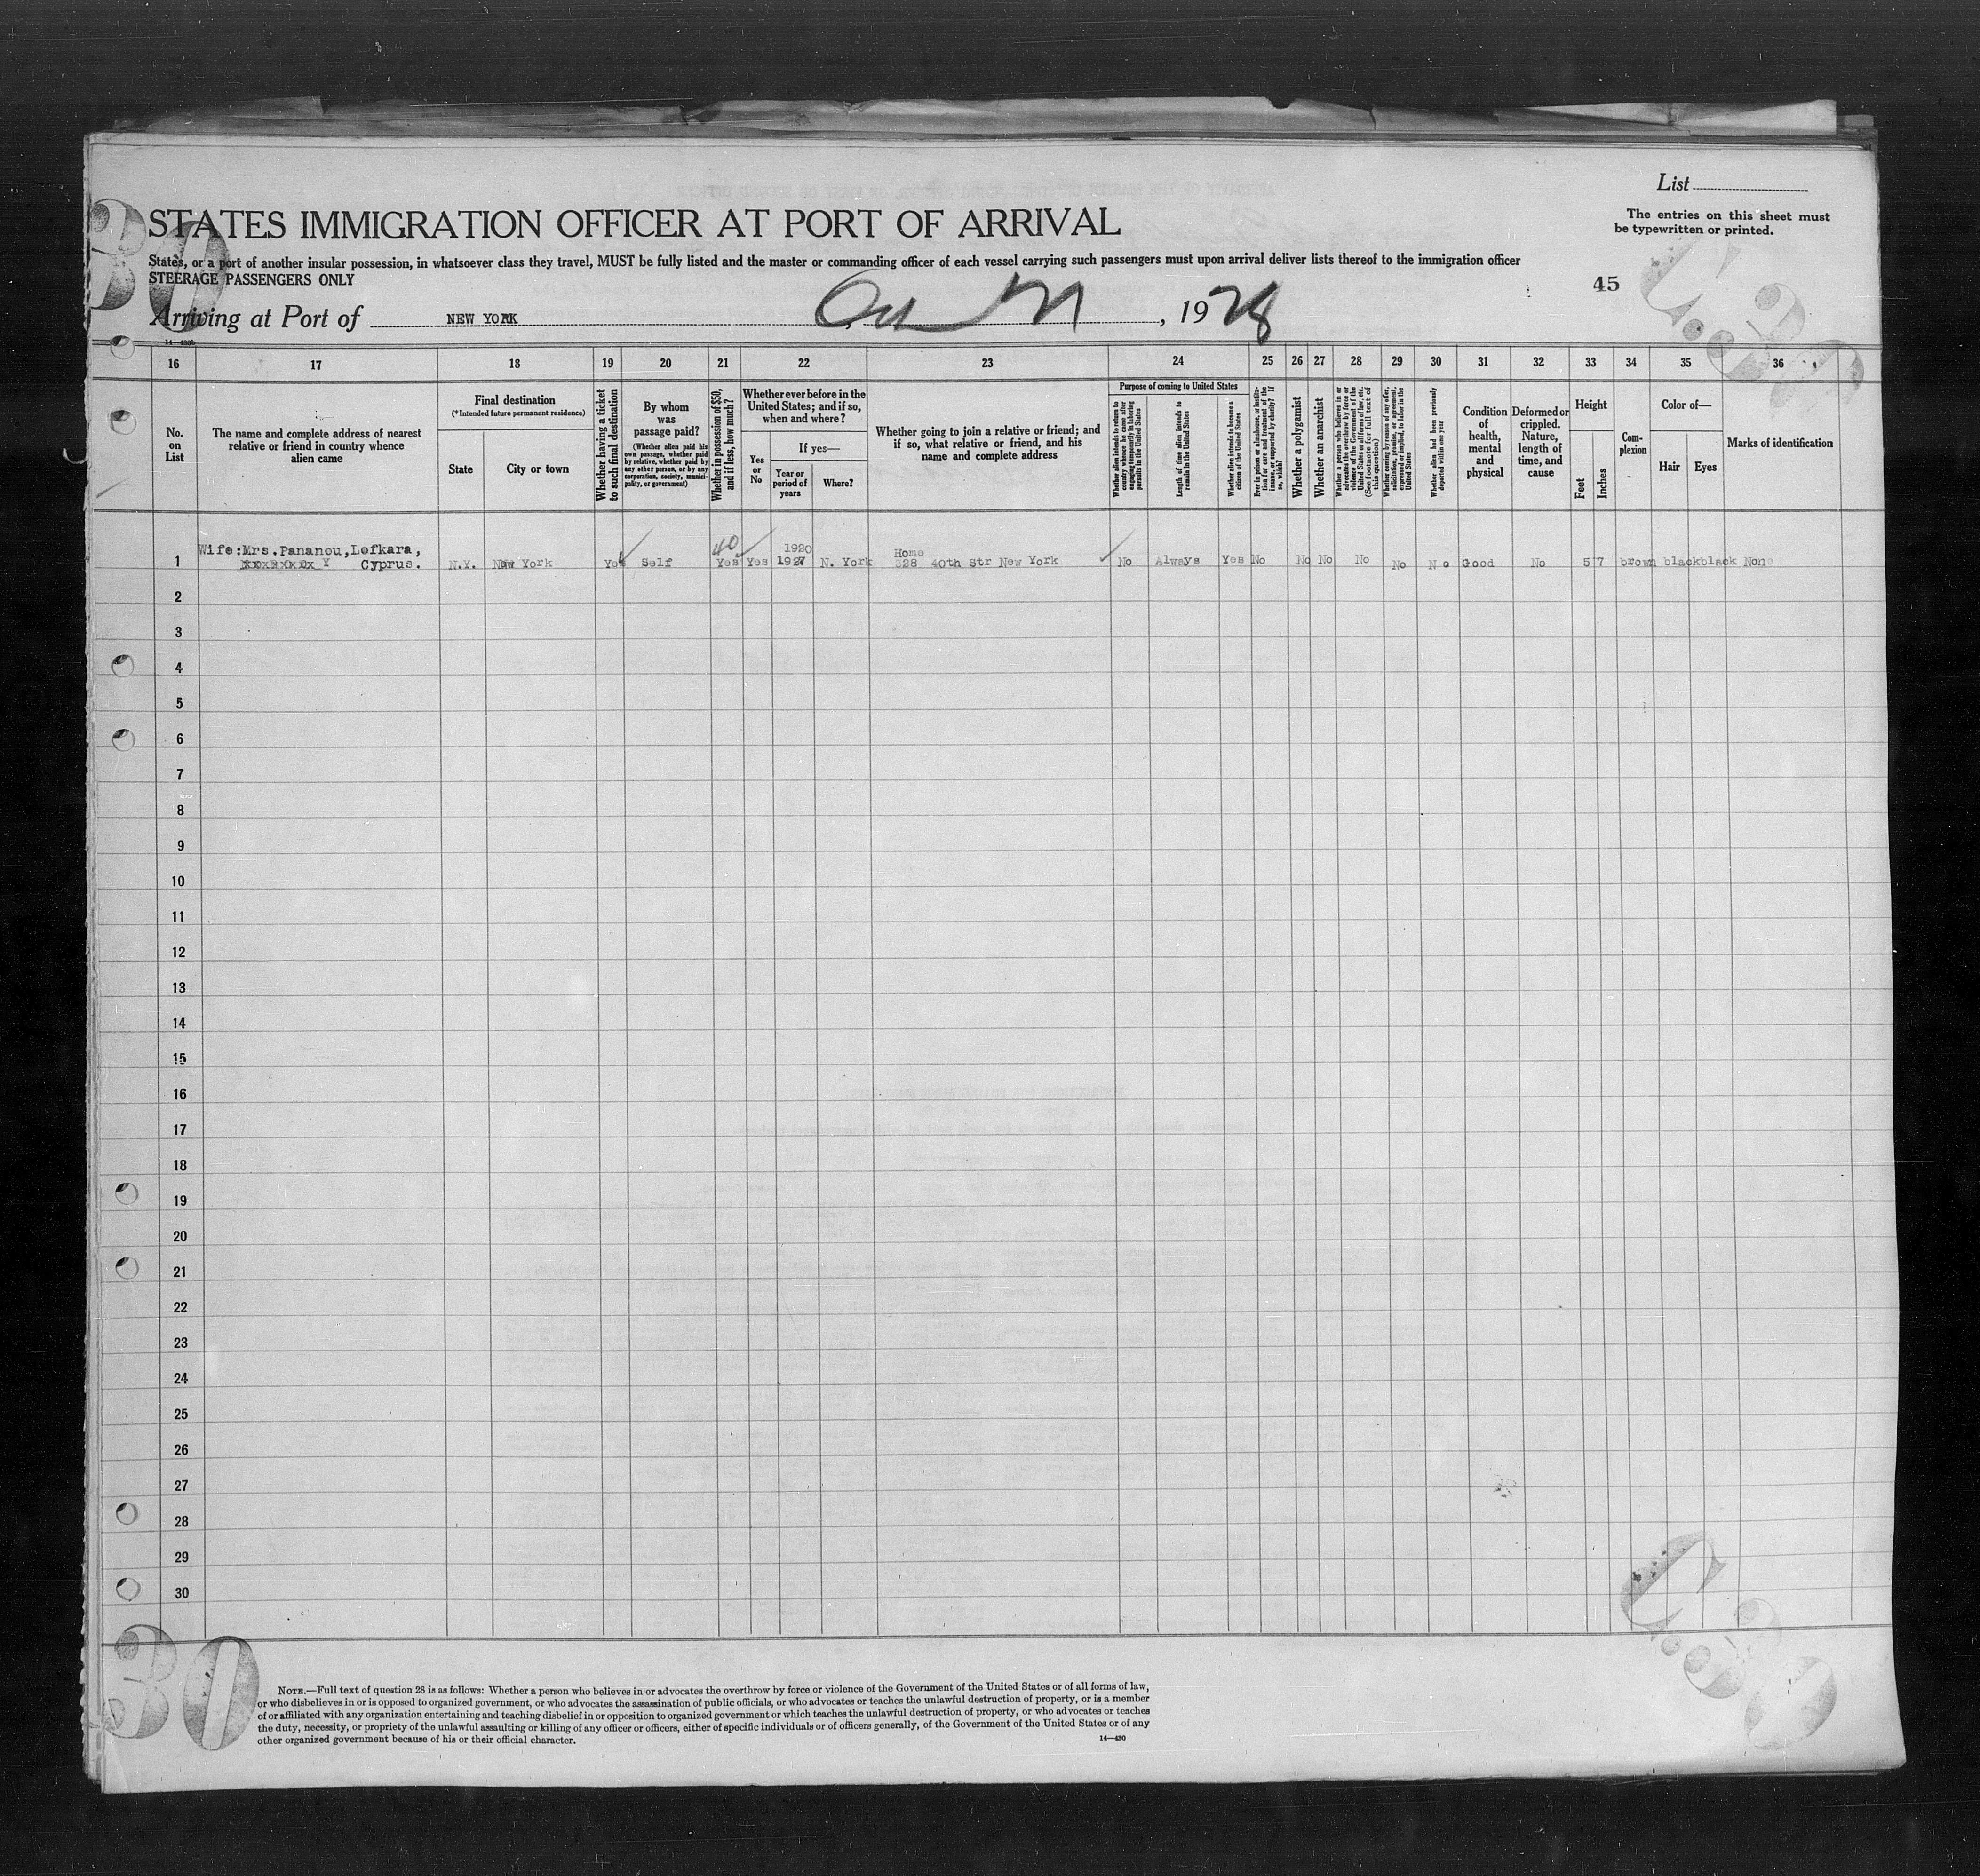 List
The entries on this sheet must
be typewritten or printed.
STATES IMMIGRATION OFFICER AT PORT OF ARRIVAL
States, or a port of another insular possession, in whatsoever class they travel, MUST be fully listed and the master or commanding officer of each vessel carrying such passengers must upon arrival deliver lists thereof to the immigration officer
STEERAGE PASSENGERS ONLY
45
30
Arriving at Port of NEW YORK, 1928
14—430b
16 17 18 19 20 21 22 23 24 25 26 27 28 29 30 31 32 33 34 35 36
No.
on
List
The name and complete address of nearest
relative or friend in country whence
alien came
Final destination
(*Intended future permanent residence)
State
City or town
Whether having a ticket
to such final destination
By whom
was
passage paid?
(Whether alien paid his
own passage, whether paid
by relative, whether paid by
any other person, or by any
corporation, society, munici-
pality, or government)
Whether in possession of $50,
and if less, how much?
Whether ever before in the
United States; and if so,
when and where?
Yes
or
No
If yes—
Year or
period of
years
Where?
Whether going to join a relative or friend; and
if so, what relative or friend, and his
name and complete address
Purpose of coming to United States
Whether alien intends to return to
country whence he came after
engaging temporarily in laboring
pursuits in the United States
Length of time alien intends to
remain in the United States
Whether alien intends to become a
citizen of the United States
Ever in prison or almshouse, or institu-
tion for care and treatment of the
insane, or supported by charity? If
so, which?
Whether a polygamist
Whether an anarchist
Whether a person who believes in or
advocates the overthrow by force or
violence of the Government of the
United States or all forms of law, etc.
(See footnote for full text of
this question)
Whether coming by reason of any offer,
solicitation, promise, or agreement,
expressed or implied, to labor in the
United States
Whether alien had been previously
deported within one year
Condition
of
health,
mental
and
physical
Deformed or
crippled.
Nature,
length of
time, and
cause
Height
Feet
Inches
Com-
plexion
Color of—
Hair
Eyes
Marks of identification
Wife:Mrs.Pananou,Lefkara, 40 1920 Home
1 Cyprus. N.Y. New York Yes Self Yes Yes 1927 N. York 328 40th Str New York No Always Yes No No No No No No Good No 5 7 brown black black None
2
3
4
5
6
7
8
9
10
11
12
13
14
15
16
17
18
19
20
21
22
23
24
25
26
27
28
29
30
30
NOTE.—Full text of question 28 is as follows: Whether a person who believes in or advocates the overthrow by force or violence of the Government of the United States or of all forms of law,
or who disbelieves in or is opposed to organized government, or who advocates the assassination of public officials, or who advocates or teaches the unlawful destruction of property, or is a member
of or affiliated with any organization entertaining and teaching disbelief in or opposition to organized government or which teaches the unlawful destruction of property, or who advocates or teaches
the duty, necessity, or propriety of the unlawful assaulting or killing of any officer or officers, either of specific individuals or of officers generally, of the Government of the United States or of any
other organized government because of his or their official character.
14—430